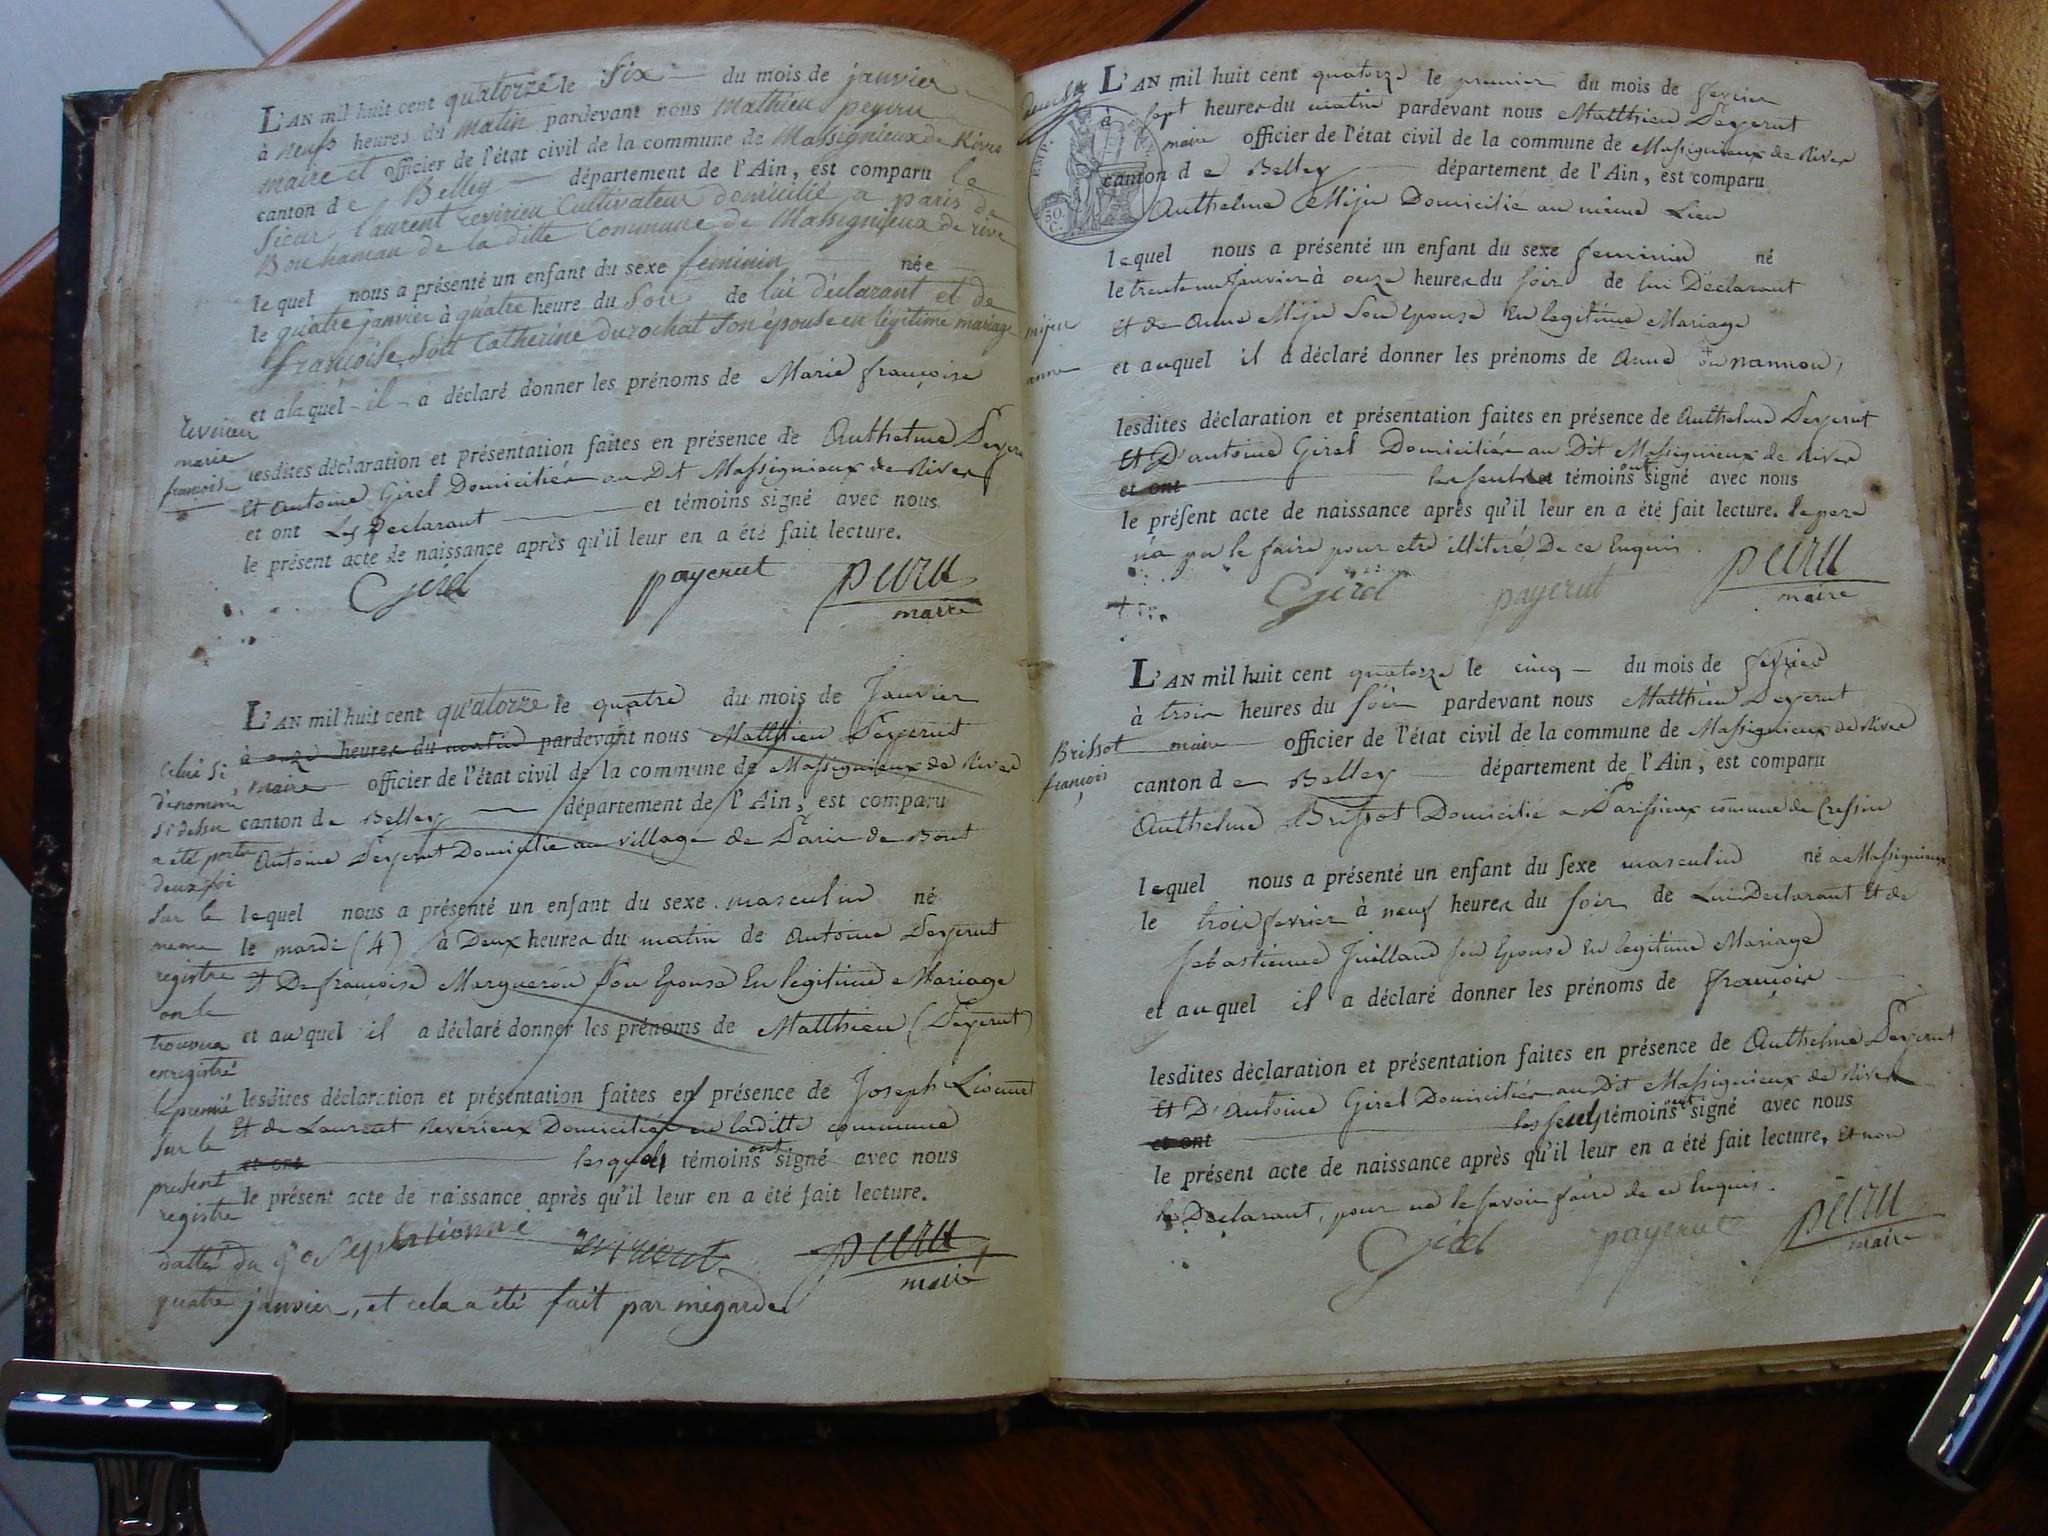 L'AN mil huit cent quatorze le six du mois de janvier
à neufs heures du matin pardevant nous mathieu peyru
maire et officier de l'état civil de la commune de Massignieux de Rives
canton de Belley département de l'Ain, est comparu le
sieur laurent revirieu Cultivateur domicilié a paris de
de la ditte Commune de Massignieux de rive
lequel nous a présenté un enfant du sexe feminin née
le quatre janvier à quatre heure du soir de lui déclarant et de
françoise Catherine durochat son épouse en légitime mariage
et alaquel il a déclaré donner les prénoms de Marie françoise
revirieu
marie
françoise
lesdites déclaration et présentation faites en présence de Anthelme Peyeru
Et Antoine Girel Domiciliés au Dit Massignieux de Rives
et ont Les Declarant et témoins signé avec nous
le présent acte de naissance après qu'il leur en a été fait lecture.
Girel payerut peuru
maire
L'AN mil huit cent quatorze le quatre du mois de Janvier
à onze heures du matin pardevant nous Matthieu Peyerut
maire officier de l'état civil de la commune de Massignieux de Rives
canton de Belley département de l'Ain, est comparu
Antoine Peyerut Domicilié au village de Paris de Bout
lequel nous a présenté un enfant du sexe masculin né
le mardi (4) à Deux heures du matin de Antoine Peyerut
Et De françoise Margueron son Epouse En legitime Mariage
et auquel il a déclaré donner les prénoms de Matthieu (Peyerut)
lesdites déclaration et présentation faites en présence de Joseph Lionnet
Et de Laurent Reverieux Domiciliés en laditte commune
et ont lesquels témoins ont signé avec nous
le présent acte de naissance après qu'il leur en a été fait lecture.
Joseph lionne peuru
maire
celui si
denommé
si dessu
a été porté
deux foi
sur le
meme
registre
on le
trouvera
enregistré
le premié
sur le
present
registre
datté du
quatre janvier, et cela a été fait par mégarde
EMP.
50.
C.
L'AN mil huit cent quatorze le premier du mois de fevrier
à sept heures du matin pardevant nous Matthieu Peyerut
maire officier de l'état civil de la commune de Massignieux de Rives
canton de Belley département de l'Ain, est comparu
Anthelme Miju Domicilié au même Lieu
lequel nous a présenté un enfant du sexe feminin né
le trente un Janvier à onze heures du soir de lui Déclarant
Et de Anne Miju son Epouse En legitime Mariage
mijeu
anne
et auquel il a déclaré donner les prénoms de Anne ou nannon,
lesdites déclaration et présentation faites en présence de Anthelme Peyerut
Et D'antoine Girel Domiciliés au Dit Massignieux de Rives
et ont les seuls témoins ont signé avec nous
le présent acte de naissance après qu'il leur en a été fait lecture. le pere
n'a pu le faire pour etre illiteré De ce Enquis.
Girel payerut peuru
maire
L'AN mil huit cent quatorze le cinq du mois de fevrier
à trois heures du soir pardevant nous Matthieu Peyerut
maire officier de l'état civil de la commune de Massignieux de Rives
canton de Belley département de l'Ain, est comparu
Brissot
françois
Anthelme Brissot Domicilié a Parissieux commune de Cressin
lequel nous a présenté un enfant du sexe masculin né a Massignieux
le trois fevrier à neuf heures du soir de Lui Declarant Et de
sebastienne Juilland son Epouse En legitime Mariage
et auquel il a déclaré donner les prénoms de françois
lesdites déclaration et présentation faites en présence de Anthelme Peyerut
Et D'Antoine Girel Domiciliés au Dit Massignieux de Rives
et ont les seuls témoins ont signé avec nous
le présent acte de naissance après qu'il leur en a été fait lecture, Et non
le Declarant, pour ne le savoir faire de ce Enquis.
Girel payerut peuru
maire